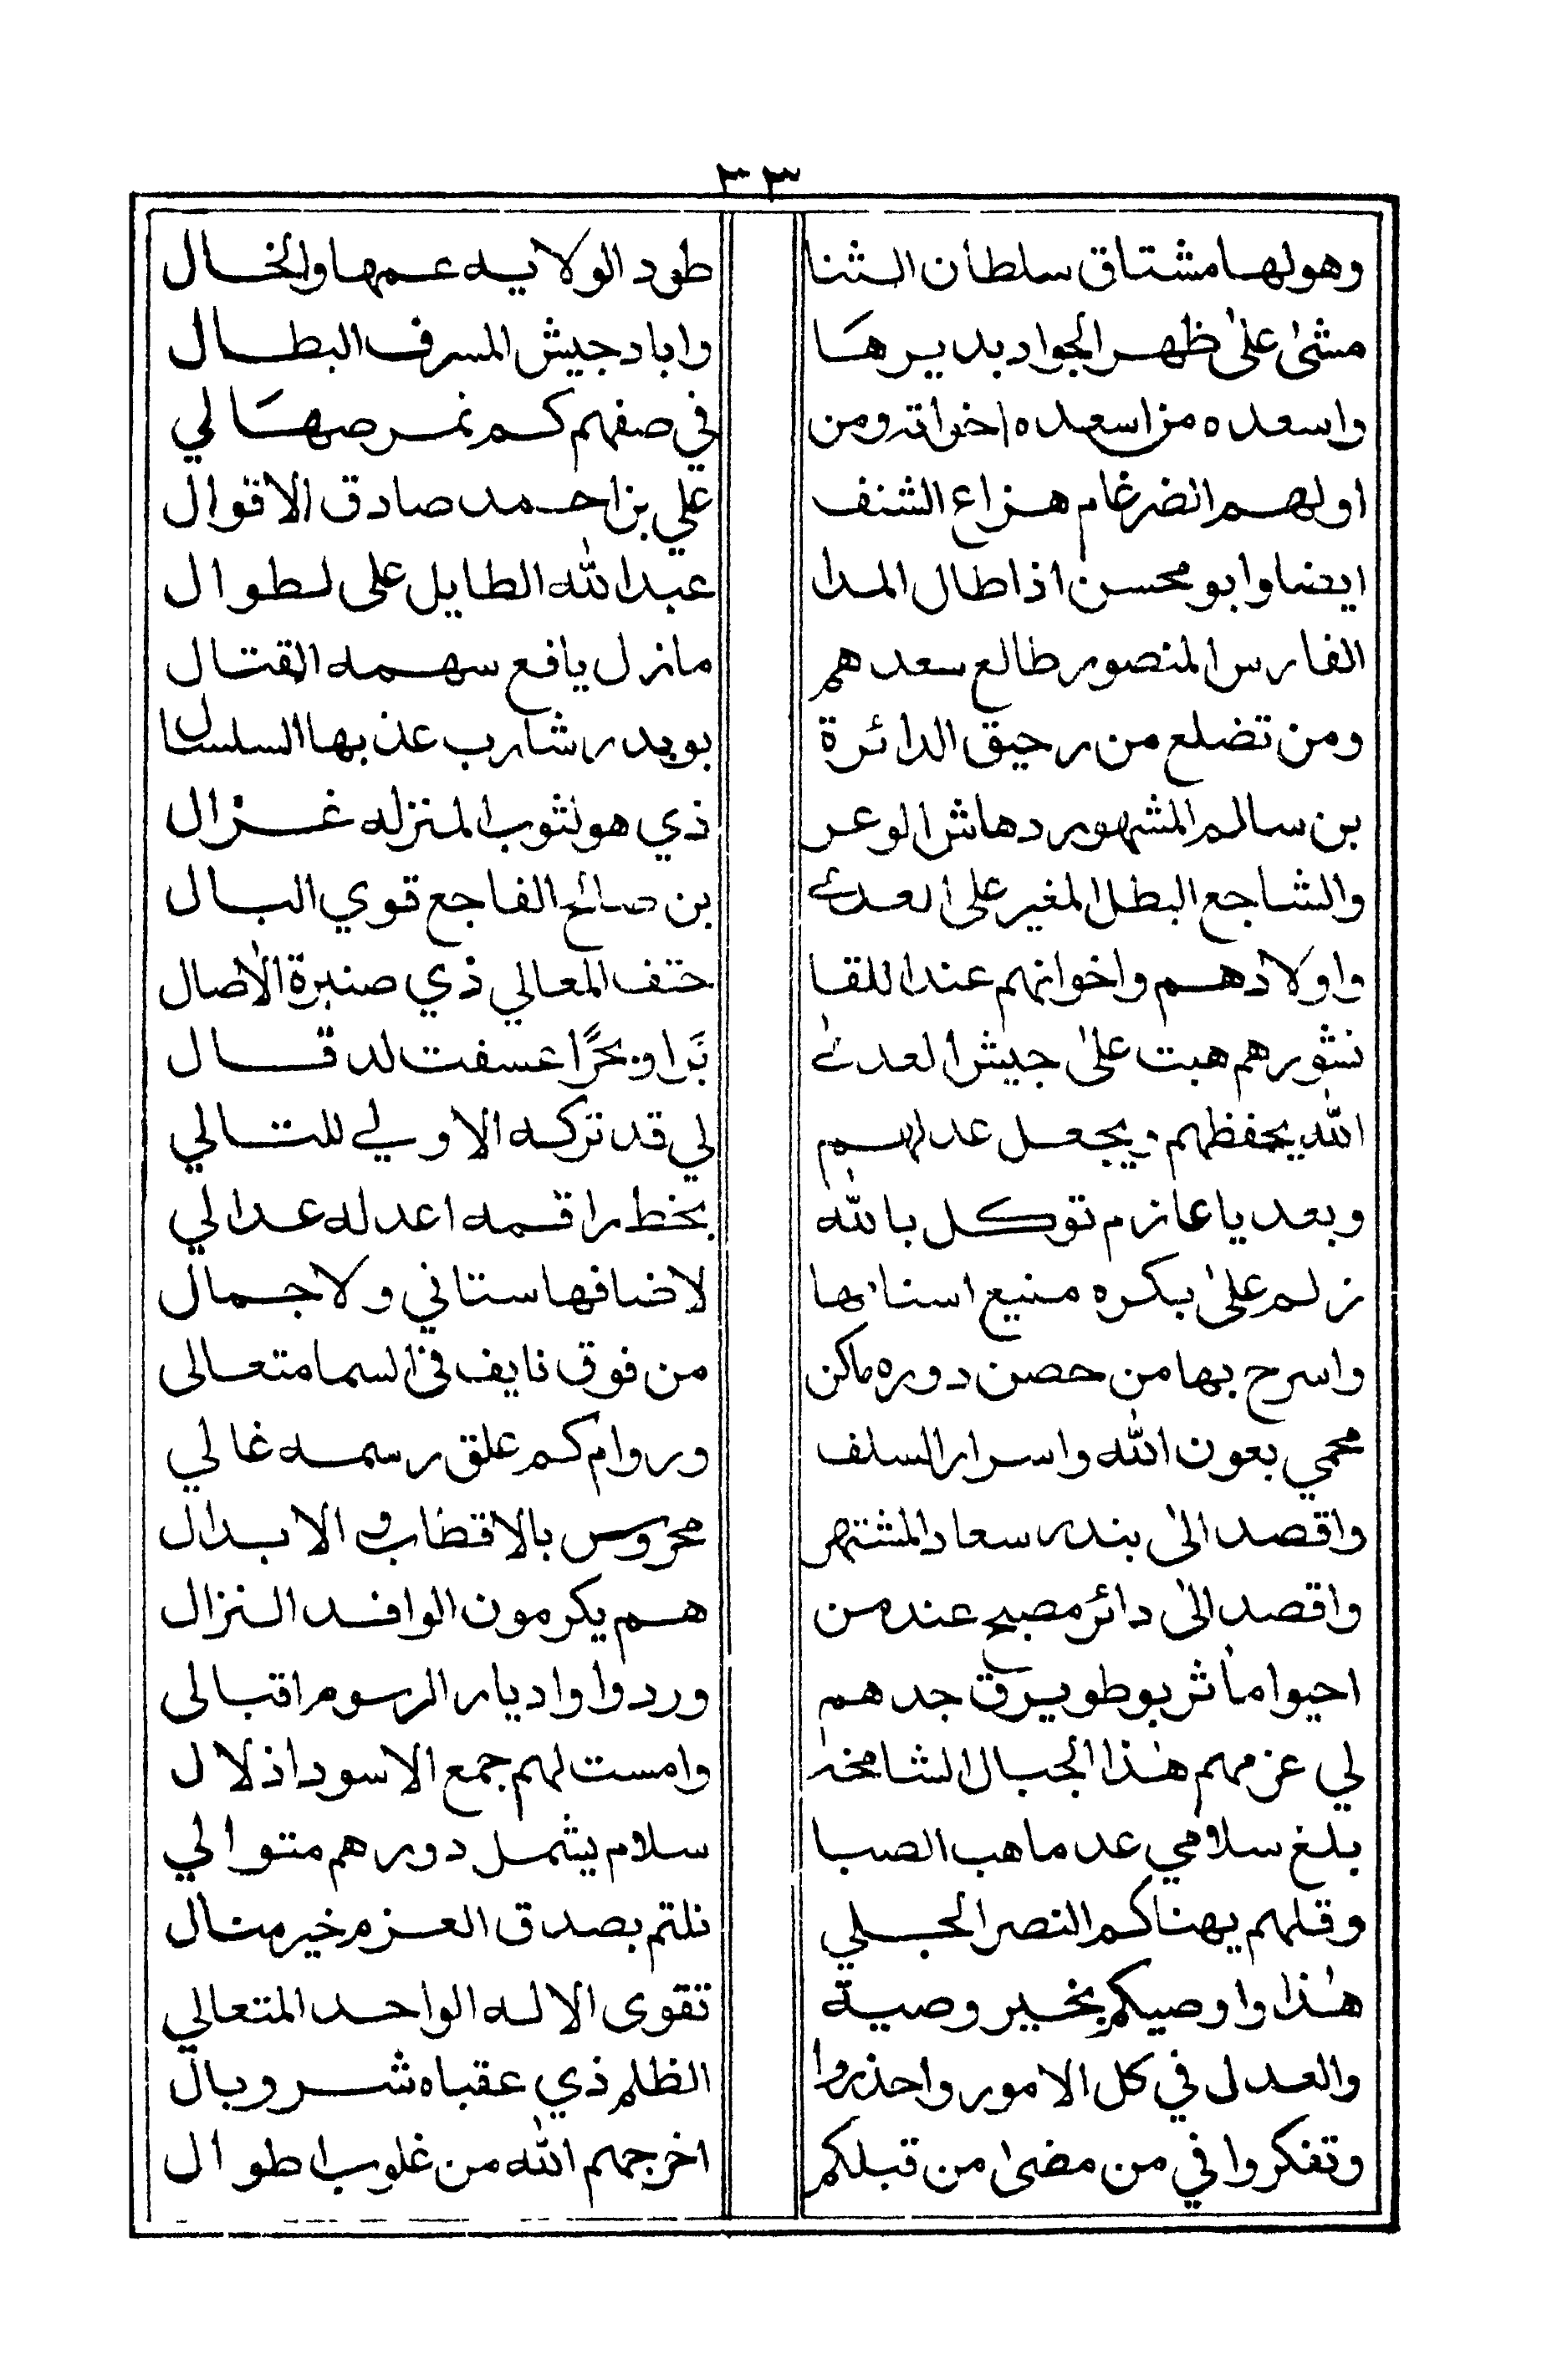 ٣٣
وهو لها مشتاق سلطان الثنا طود الولايه عمها والخال
مشىٰ علىٰ ظهر الجواد بديرها واباد جيش المسرف البطال
واسعده من اسعده اخوانه ومن في صفهم كم نمر صهالي
اولهم الضرغام هزاع الشنف علي بن احمد صادق الاقوال
ايضا وابو محسن اذا طال المدا عبدالله الطايل على لطوال
الفارس المنصور طالع سعدهم مانزل يافع سهمه القتال
ومن تضلع من رحيق الدائرة بوبدر شارب عذبها السلسال
بن سالم المشهور دهاش الوعر ذي هو لثوب المنزله غزال
والشاجع البطل المغير على العدىٰ بن صالح الفاجع قوي البال
واولادهم واخوانهم عند اللقا حتف المعالي ذي صنبرة الاصال
نثورهم هبت علىٰ جيش العدىٰ بَرا وبحرًا عسفت لدقال
الله يحفظهم ويجعل عدلهم لي قد تركه الاولي للتالي
وبعد يا عازم توكل بالله بخط راقمه اعدله عدالي
زلم علىٰ بكره منيع اسنابها لاضافها ستاني ولا جمال
واسرح بها من حصن دوره ماكن من فوق نايف في السما متعالى
محمي بعون الله واسرار السلف وروام كم علق رسمه غالي
واقصد الىٰ بندر سعاد المشتهر محروس بالاقطاب و الابدال
واقصد الىٰ دائر مصبح عند من هم يكرمون الوافد النزال
احيوا مآثر بوطويرق جدهم وردوا واديار الرسوم اقبالى
لي عزمهم هٰذا الجبال الشامخه وامست لهم جمع الاسود اذلال
بلغ سلامي عد ما هب الصبا سلام يشمل دورهم متوالي
وقلهم يهناكم النصر الجلي نلتم بصدق العزم خير منال
هٰذا واوصيكم بخير وصية تقوى الاله الواحد المتعالي
والعدل في كل الامور واحذروا الظلم ذي عقباه شر وبال
وتفكروا في من مضىٰ من قبلكم اخرجهم الله من غلوب اطوال